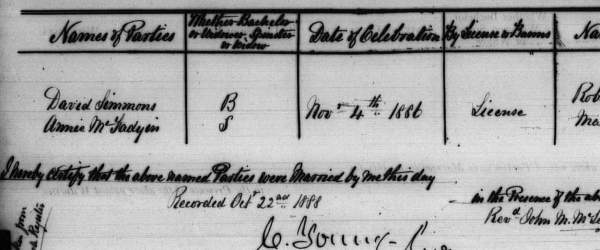 Names of Parties
Whether Bachelor or Widower, Spinster or Widow
Date of Celebration
By License or Banns
David Simmons
B
Nov 4th 1886
License
Rob
Annie McFadyin
S
I hereby certify that the above named Parties were Married by me this day
Recorded Oct 22nd 1888
in the Presence of the abo
Revd John M. McL
C. Young